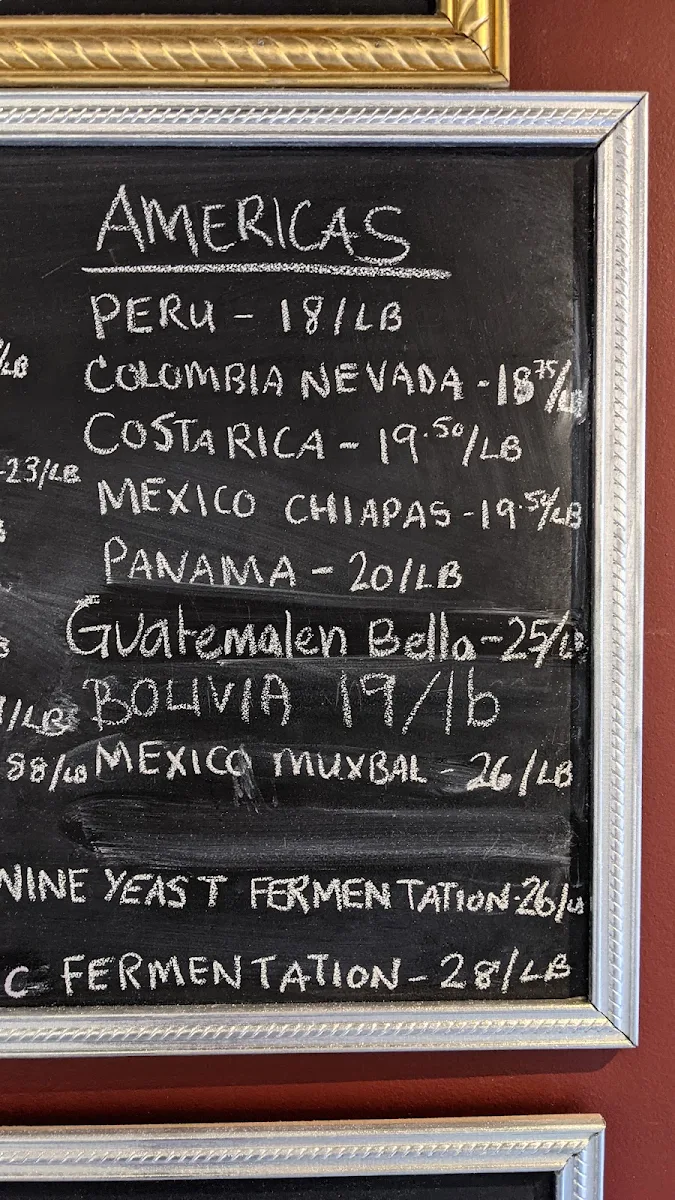 AMERICAS
PERU - 18/LB
/LB
COLOMBIA NEVADA - 18.75/LB
COSTA RICA - 19.50/LB
-23/LB
MEXICO CHIAPAS - 19.50/LB
PANAMA - 20/LB
Guatemalen Bella - 25/LB
BOLIVIA 19/lb
/LB
88/LB
MEXICO MUXBAL - 26/LB
WINE YEAST FERMENTATION - 26/LB
C FERMENTATION - 28/LB